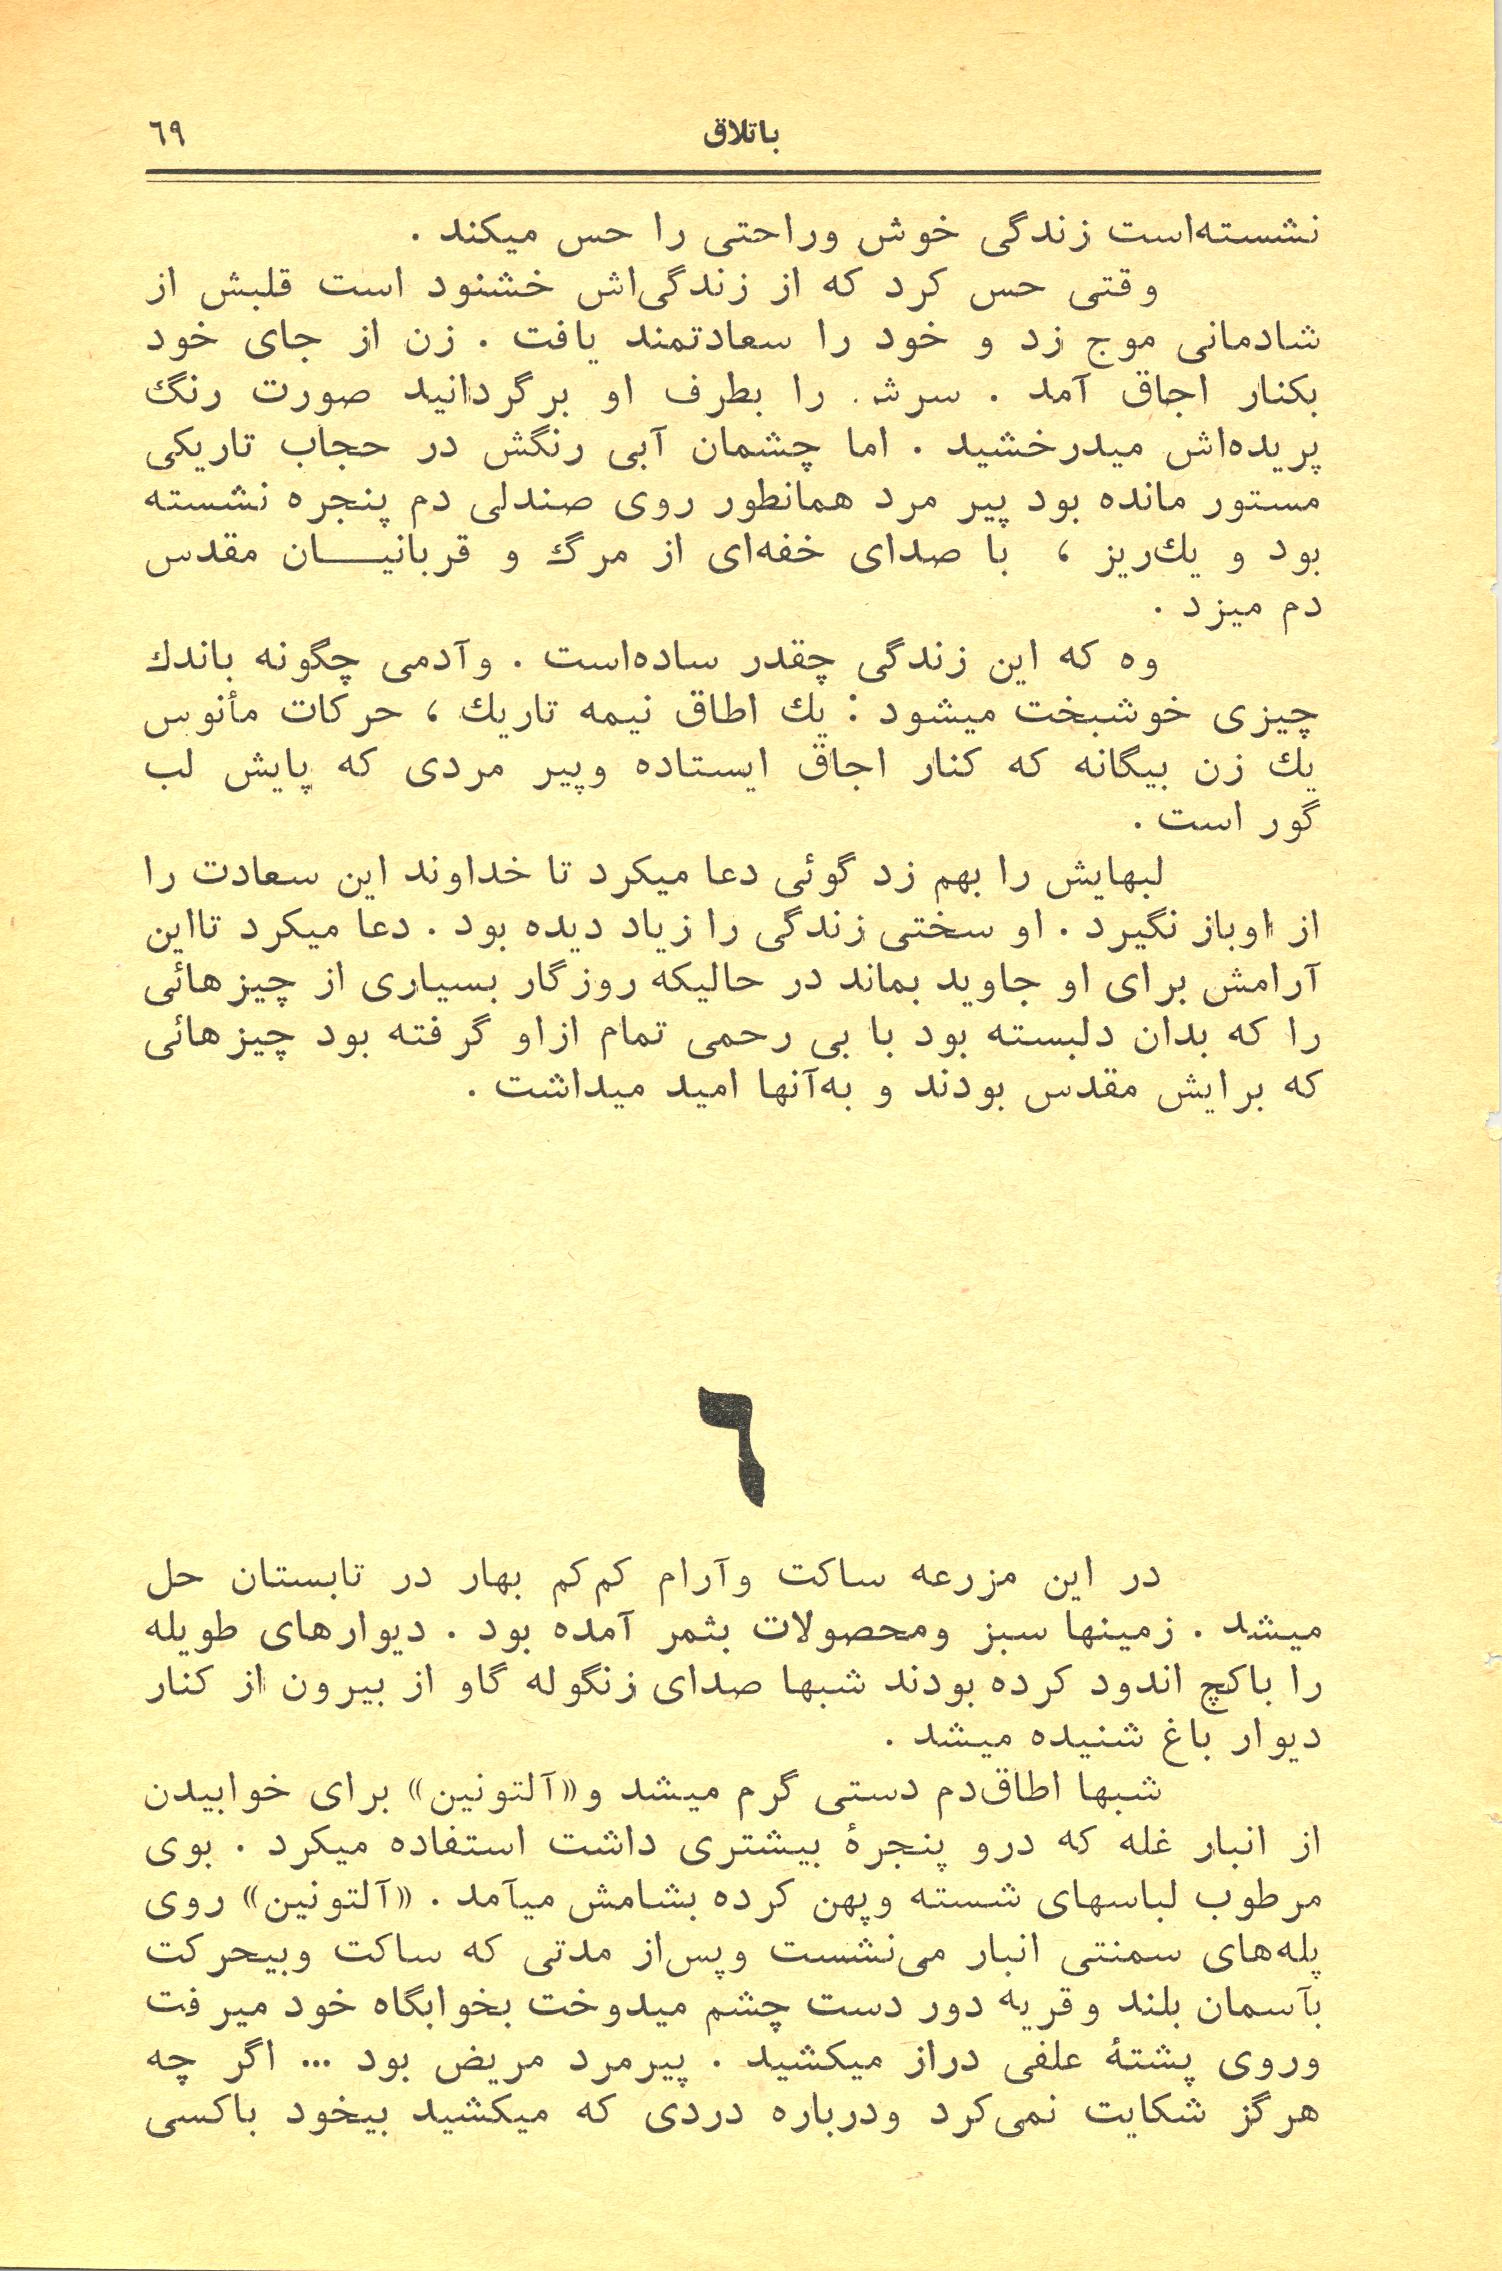 باتلاق ٦٩
نشسته‌است زندگی خوش وراحتی را حس میکند .
وقتی حس کرد که از زندگی‌اش خشنود است قلبش از
شادمانی موج زد و خود را سعادتمند یافت . زن از جای خود
بکنار اجاق آمد . سرش را بطرف او برگردانید صورت رنگ
پریده‌اش میدرخشید . اما چشمان آبی رنگش در حجاب تاریکی
مستور مانده بود پیر مرد همانطور روی صندلی دم پنجره نشسته
بود و یك‌ریز ، با صدای خفه‌ای از مرگ و قربانیــــان مقدس
دم میزد .
وه که این زندگی چقدر ساده‌است . وآدمی چگونه باندك
چیزی خوشبخت میشود : یك اطاق نیمه تاریك ، حرکات مأنوس
یك زن بیگانه که کنار اجاق ایستاده وپیر مردی که پایش لب
گور است .
لبهایش را بهم زد گوئی دعا میکرد تا خداوند این سعادت را
از اوباز نگیرد . او سختی زندگی را زیاد دیده بود . دعا میکرد تااین
آرامش برای او جاوید بماند در حالیکه روزگار بسیاری از چیزهائی
را که بدان دلبسته بود با بی رحمی تمام ازاو گرفته بود چیزهائی
که برایش مقدس بودند و به‌آنها امید میداشت .
٦
در این مزرعه ساکت وآرام کم‌کم بهار در تابستان حل
میشد . زمینها سبز ومحصولات بثمر آمده بود . دیوارهای طویله
را باکچ اندود کرده بودند شبها صدای زنگوله گاو از بیرون از کنار
دیوار باغ شنیده میشد .
شبها اطاق‌دم دستی گرم میشد و«آلتونین» برای خوابیدن
از انبار غله که درو پنجرهٔ بیشتری داشت استفاده میکرد . بوی
مرطوب لباسهای شسته وپهن کرده بشامش میآمد . «آلتونین» روی
پله‌های سمنتی انبار می‌نشست وپس‌از مدتی که ساکت وبیحرکت
بآسمان بلند وقریه دور دست چشم میدوخت بخوابگاه خود میرفت
وروی پشتهٔ علفی دراز میکشید . پیرمرد مریض بود ... اگر چه
هرگز شکایت نمی‌کرد ودرباره دردی که میکشید بیخود باکسی